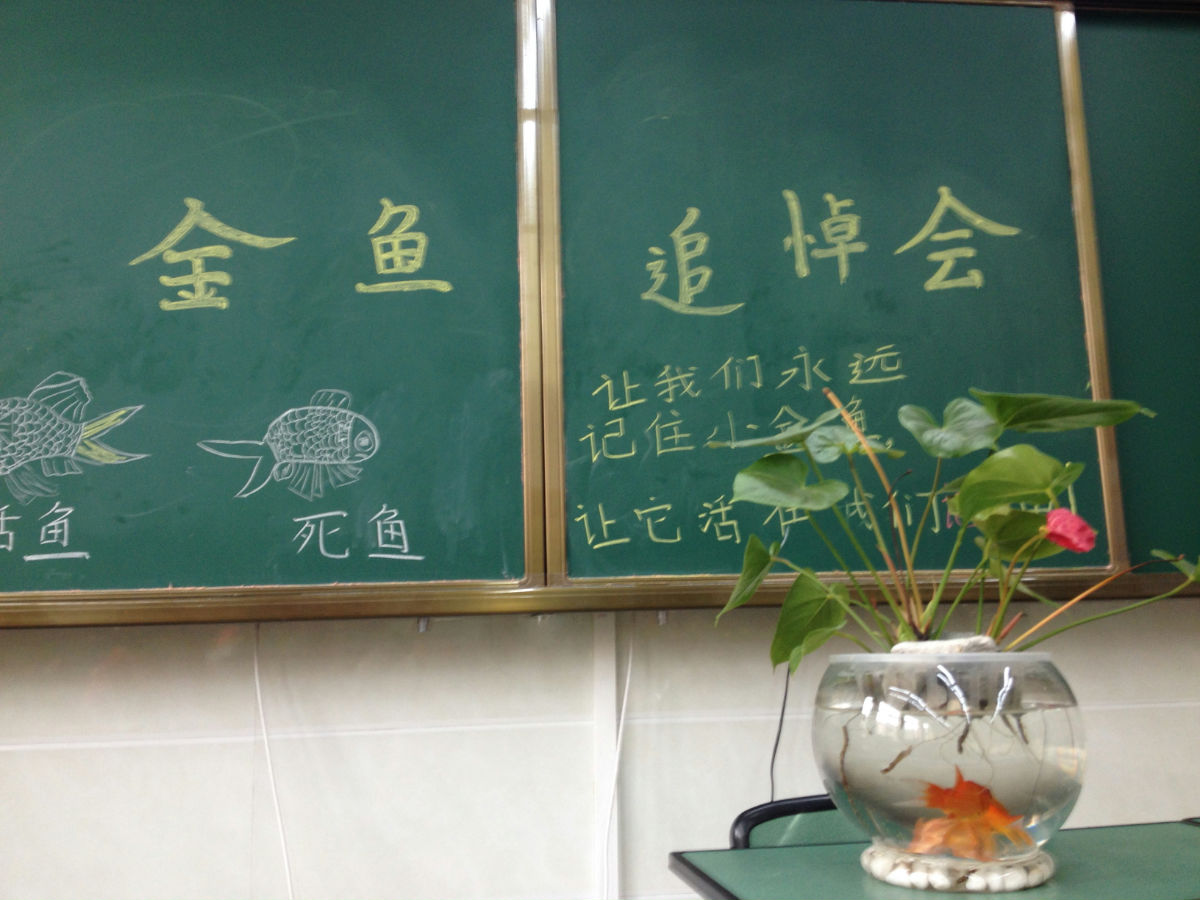 金鱼 追悼会
让我们永远
记住小金鱼,
让它活在我们
活鱼 死鱼